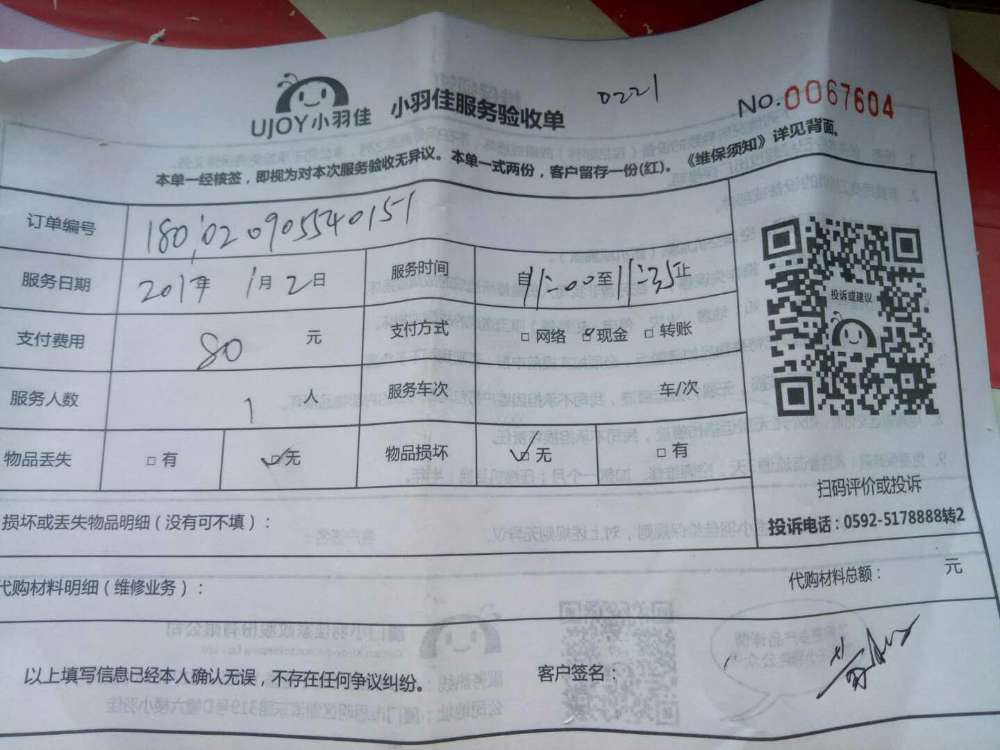 UJOY小羽佳 小羽佳服务验收单 0221 No.0067604
本单一经核签，即视为对本次服务验收无异议。本单一式两份，客户留存一份(红)。《维保须知》详见背面。
订单编号 1801020905540151
服务日期 201年1月2日 服务时间 自11:00至11:35止
支付费用 80 元 支付方式 □网络 ☑现金 □转账
服务人数 1 人 服务车次 车/次
物品丢失 □有 ☑无 物品损坏 ☑无 □有
投诉或建议
扫码评价或投诉
投诉电话：0592-5178888转2
损坏或丢失物品明细（没有可不填）：
代购材料明细（维修业务）： 代购材料总额： 元
以上填写信息已经本人确认无误，不存在任何争议纠纷。 客户签名：